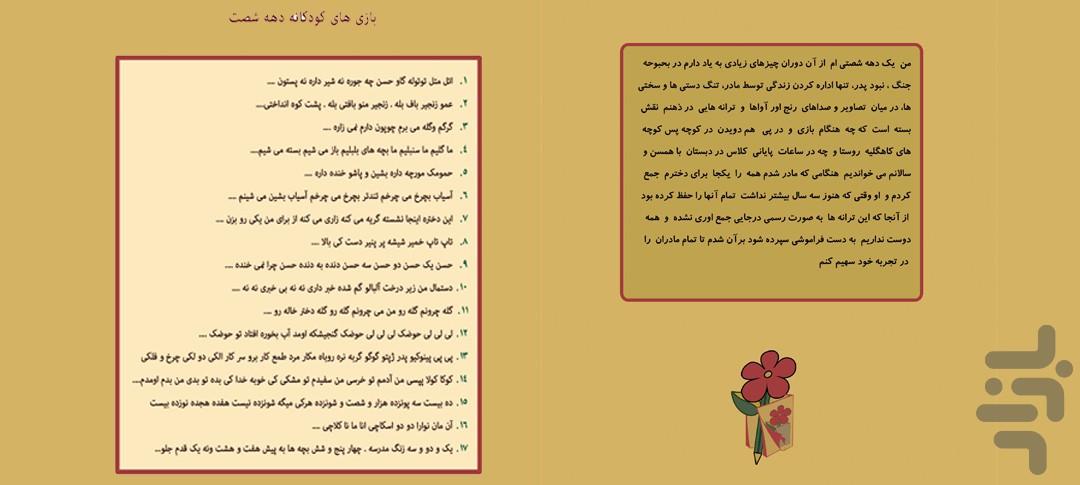 بازی های کودکانه دهه شصت
۱. اتل متل توتوله گاو حسن چه جوره نه شیر داره نه پستون ....
۲. عمو زنجیر باف بله . زنجیر منو بافتی بله . پشت کوه انداختی....
۳. گرگم وگله می برم چوپون دارم نمی زاره ....
۴. ما گلیم ما سنبلیم ما بچه های بلبلیم باز می شیم بسته می شیم....
۵. حمومک مورچه داره بشین و پاشو خنده داره ....
۶. آسیاب بچرخ می چرخم تندتر بچرخ می چرخم آسیاب بشین می شینم ....
۷. این دختره اینجا نشسته گریه می کنه زاری می کنه از برای من یکی رو بزن ....
۸. تاپ تاپ خمیر شیشه پر پنیر دست کی بالا ....
۹. حسن یک حسن دو حسن سه حسن دنده به دنده حسن چرا نمی خنده ....
۱۰. دستمال من زیر درخت آلبالو گم شده خبر داری نه نه بی خبری نه نه ....
۱۱. گله چرونم گله رو من می چرونم گله رو گله دختر خاله رو ....
۱۲. لی لی لی حوضک لی لی لی حوضک گنجیشکه اومد آب بخوره افتاد تو حوضک ....
۱۳. پی پی پینوکیو پدر ژپتو گوگو گربه نره روباه مکار مرد طمع کار برو سر کار الکی دو لکی چرخ و فلکی
۱۴. کوکا کولا پپسی من آدمم تو خرسی من سفیدم تو مشکی کی خوبه خدا کی بده تو بدی من بدم اومدم....
۱۵. ده بیست سه پونزده هزار و شصت و شونزده هرکی میگه شونزده نیست هفده هجده نوزده بیست
۱۶. آن مان نوارا دو دو اسکاچی انا ما نا کلاچی ....
۱۷. یک و دو و سه زنگ مدرسه . چهار پنج و شش بچه ها به پیش هفت و هشت ونه یک قدم جلو...
من یک دهه شصتی ام از آن دوران چیزهای زیادی به یاد دارم در بحبوحه
جنگ ، نبود پدر، تنها اداره کردن زندگی توسط مادر، تنگ دستی ها و سختی
ها، در میان تصاویر و صداهای رنج اور آواها و ترانه هایی در ذهنم نقش
بسته است که چه هنگام بازی و در پی هم دویدن در کوچه پس کوچه
های کاهگلیه روستا و چه در ساعات پایانی کلاس در دبستان با همسن و
سالانم می خواندیم هنگامی که مادر شدم همه را یکجا برای دخترم جمع
کردم و او وقتی که هنوز سه سال بیشتر نداشت تمام آنها را حفظ کرده بود
از آنجا که این ترانه ها به صورت رسمی درجایی جمع اوری نشده و همه
دوست نداریم به دست فراموشی سپرده شود برآن شدم تا تمام مادران را
در تجربه خود سهیم کنم
بازار